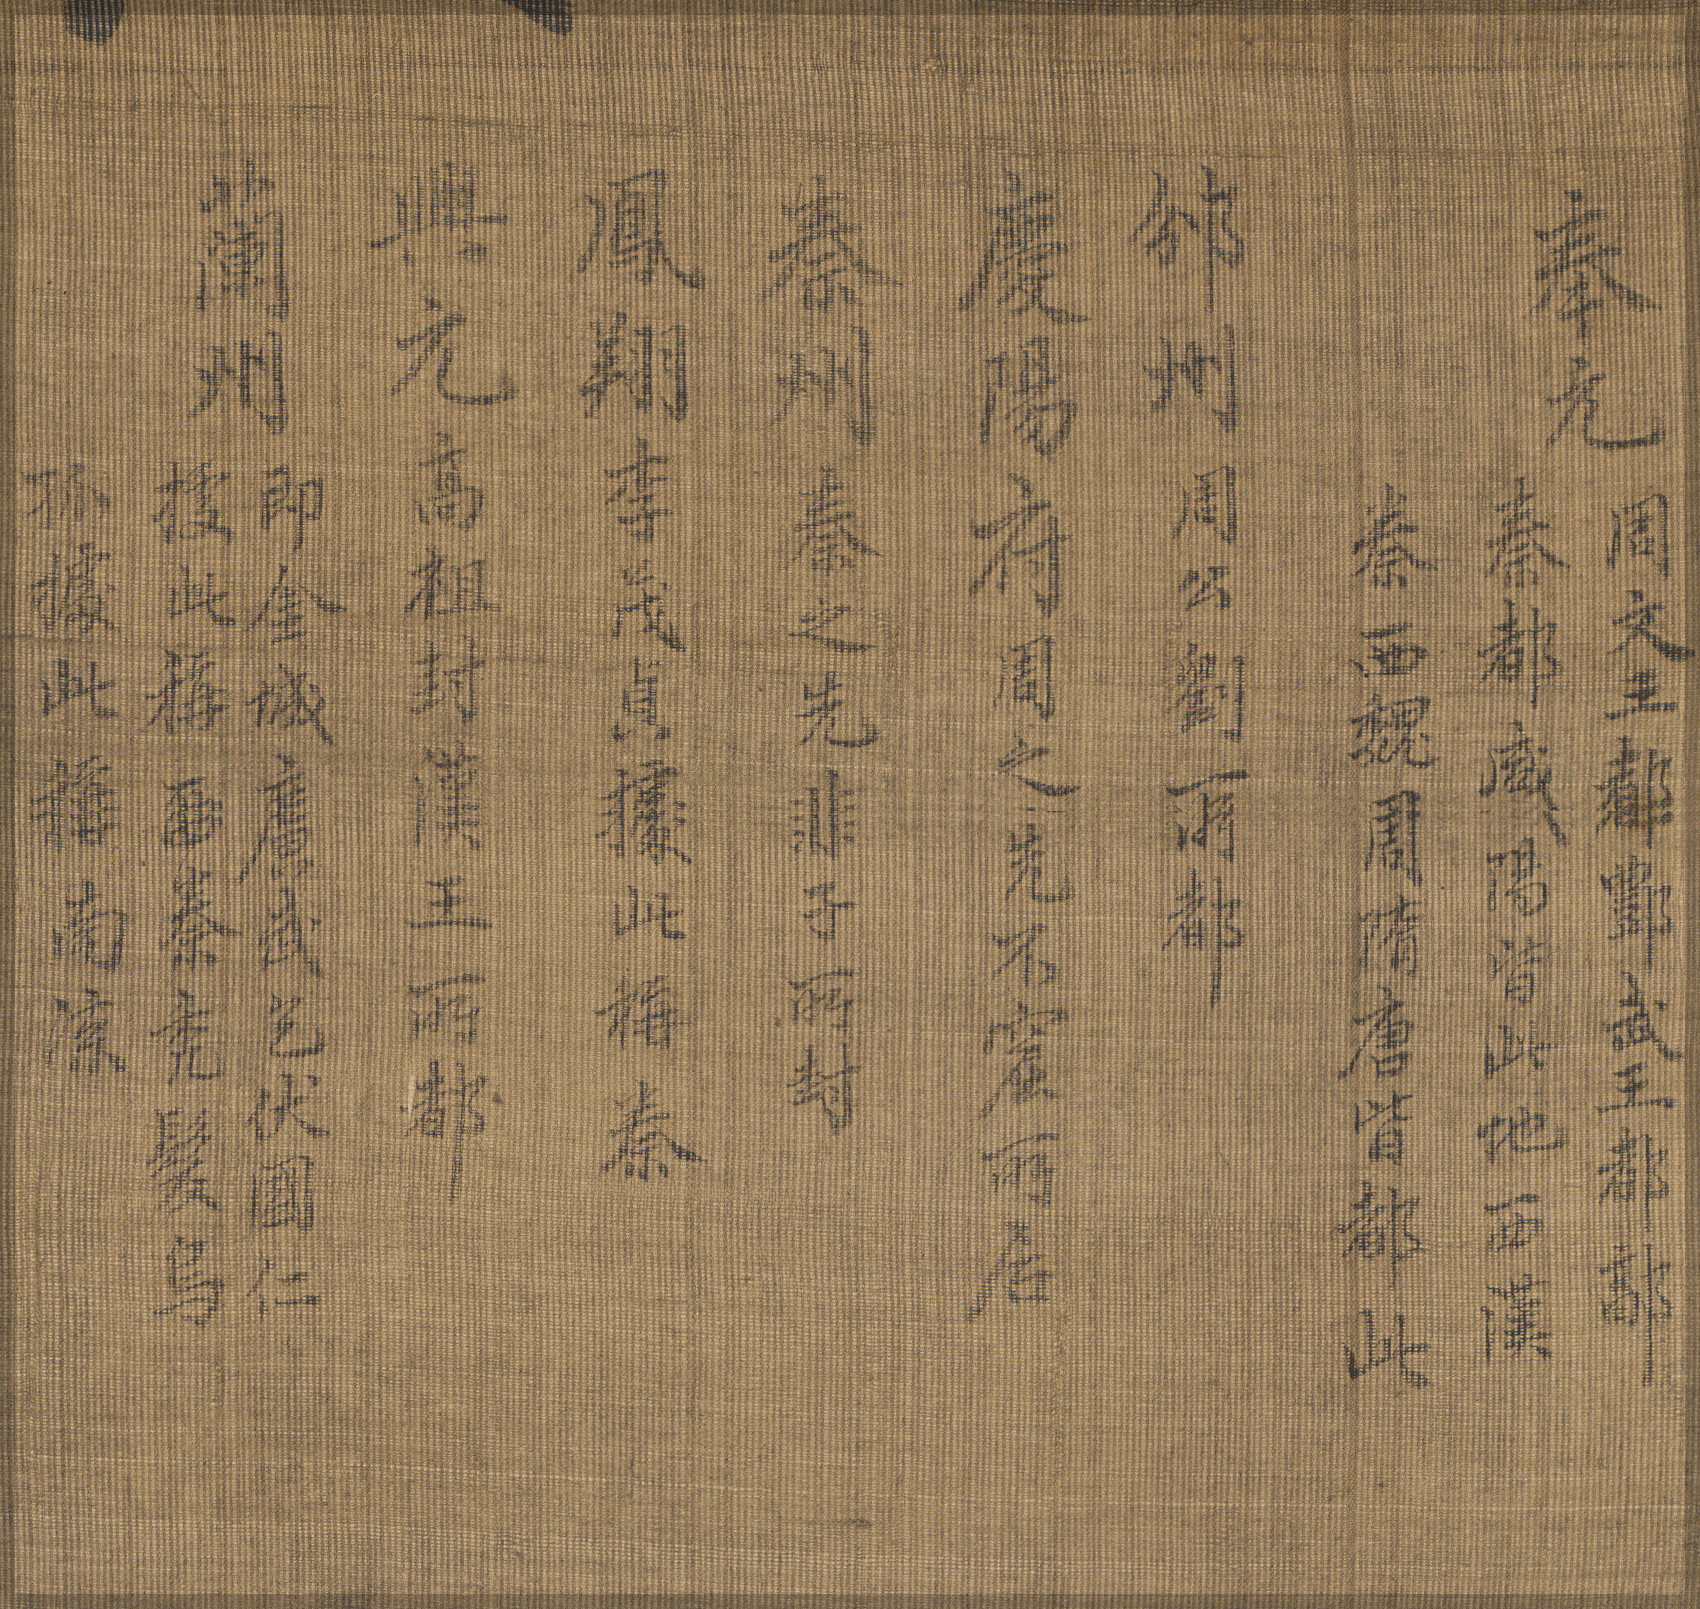 奉元 周文王都酆武王都鄗
秦都咸陽皆此地西漢
秦西魏周隋唐皆都此
邠州 周公劉所都
慶陽府 周之先不窋所居
秦州 秦之先非子所封
鳳翔 李茂貞據此稱秦
興元 高祖封漢王所都
蘭州 即金城廣武邑伏國仁
據此稱西秦禿髮烏
孤據此稱南凉